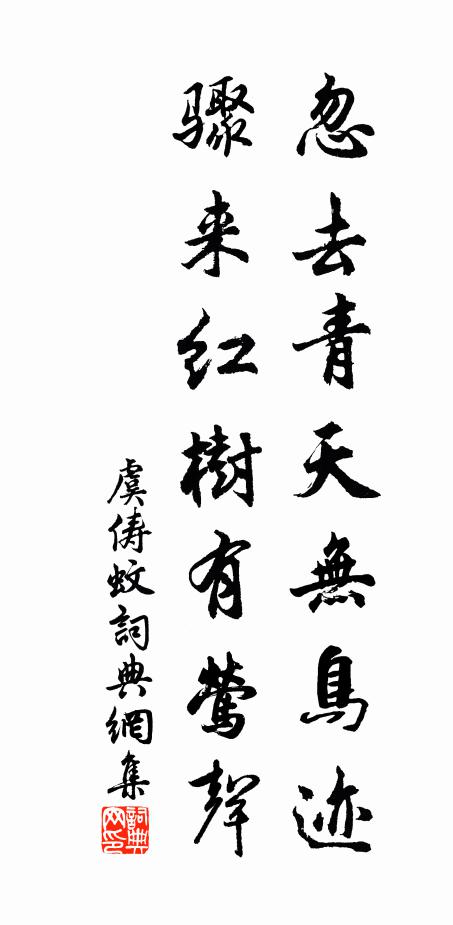 忽去青天無鳥迹
驟来紅樹有鶯聲
虞儔蚊詞典網集
詞典网印